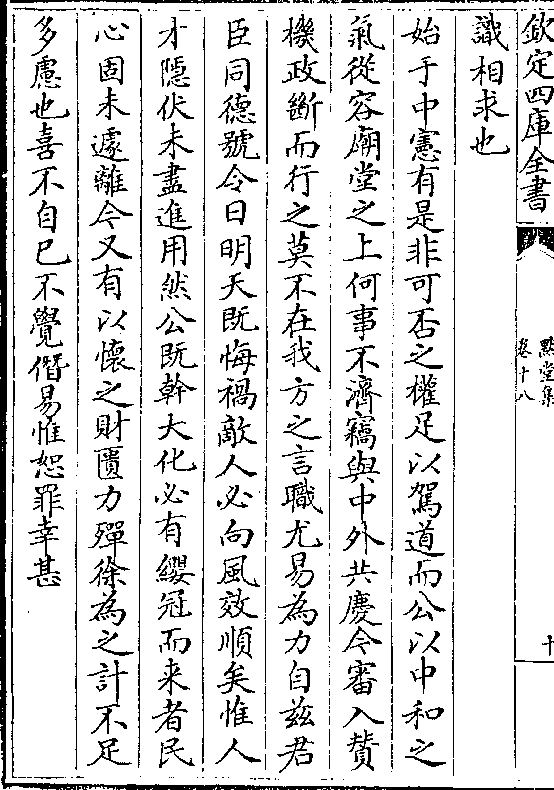 欽定四庫全書
默堂集
卷十八
十
識相求也
始于中憲有是非可否之權足以駕道而公以中和之
氣從容廟堂之上何事不濟竊與中外共慶今審入賛
機政斷而行之莫不在我方之言職尤易為力自兹君
臣同德號令日明天既悔禍敵人必向風效順矣惟人
才隱伏未盡進用然公既幹大化必有纓冠而来者民
心固未遽離今又有以懷之財匱力殫徐為之計不足
多慮也喜不自已不覺僭易惟恕罪幸甚